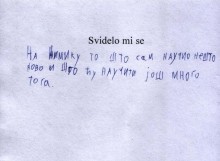 Svidelo mi se
НА ЊИМИКУ ТО ШТО САМ НАУЧИО НЕШТО
НОВО И ШТО ЋУ НАУЧИТИ ЈОШ МНОГО
ТОГА.